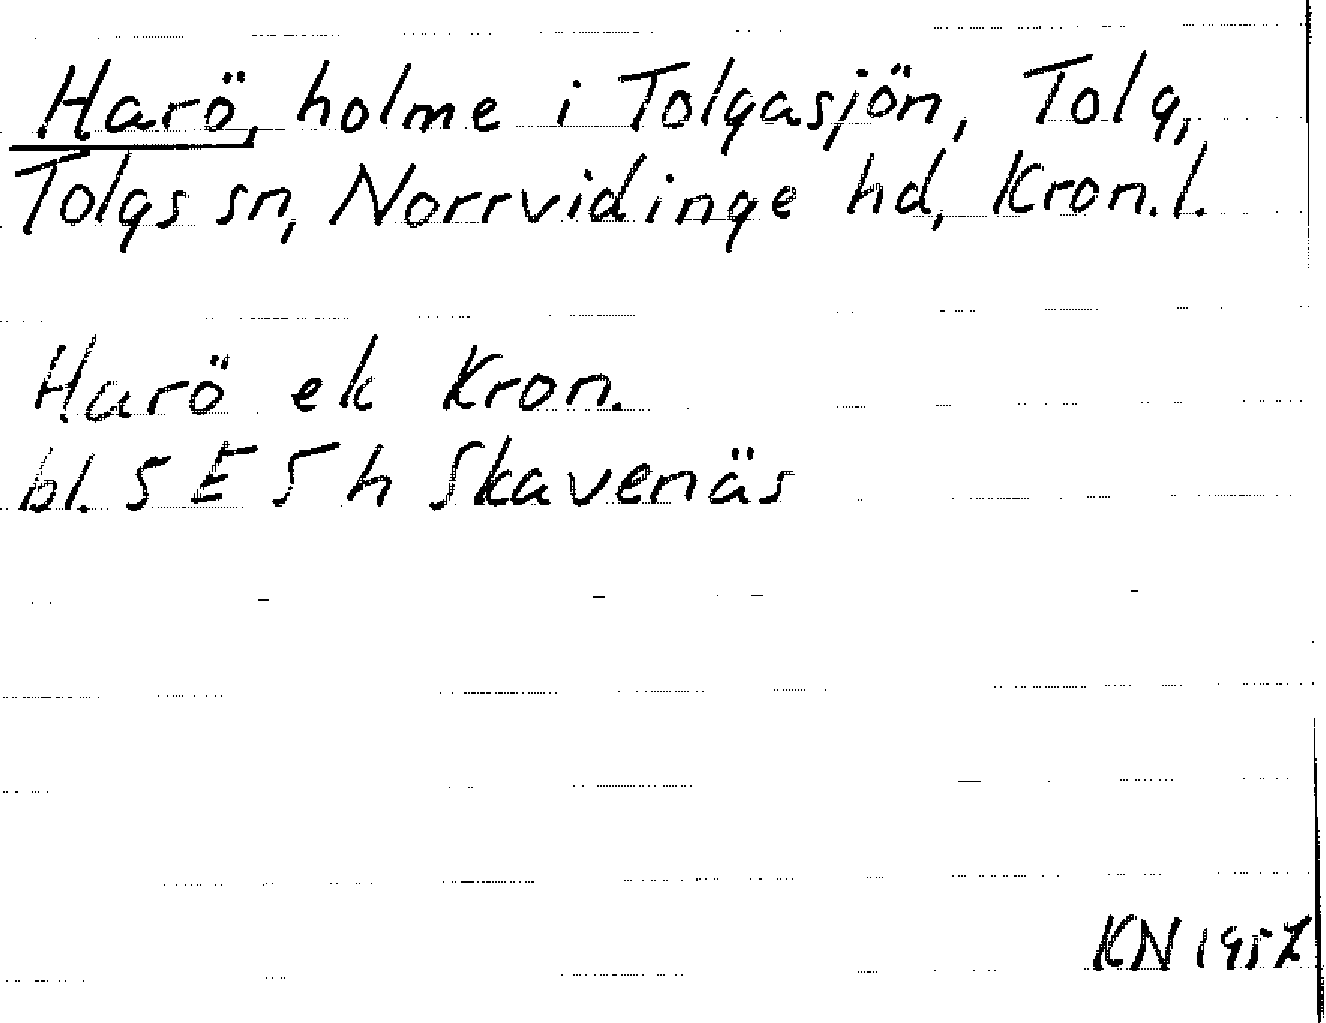 Harö, holme i Tolgasjön, Tolg,
Tolgs sn, Norrvidinge hd, Kron.l.
Harö ek Kron.
bl. 5 E 5 h Skavenäs
KN 1957